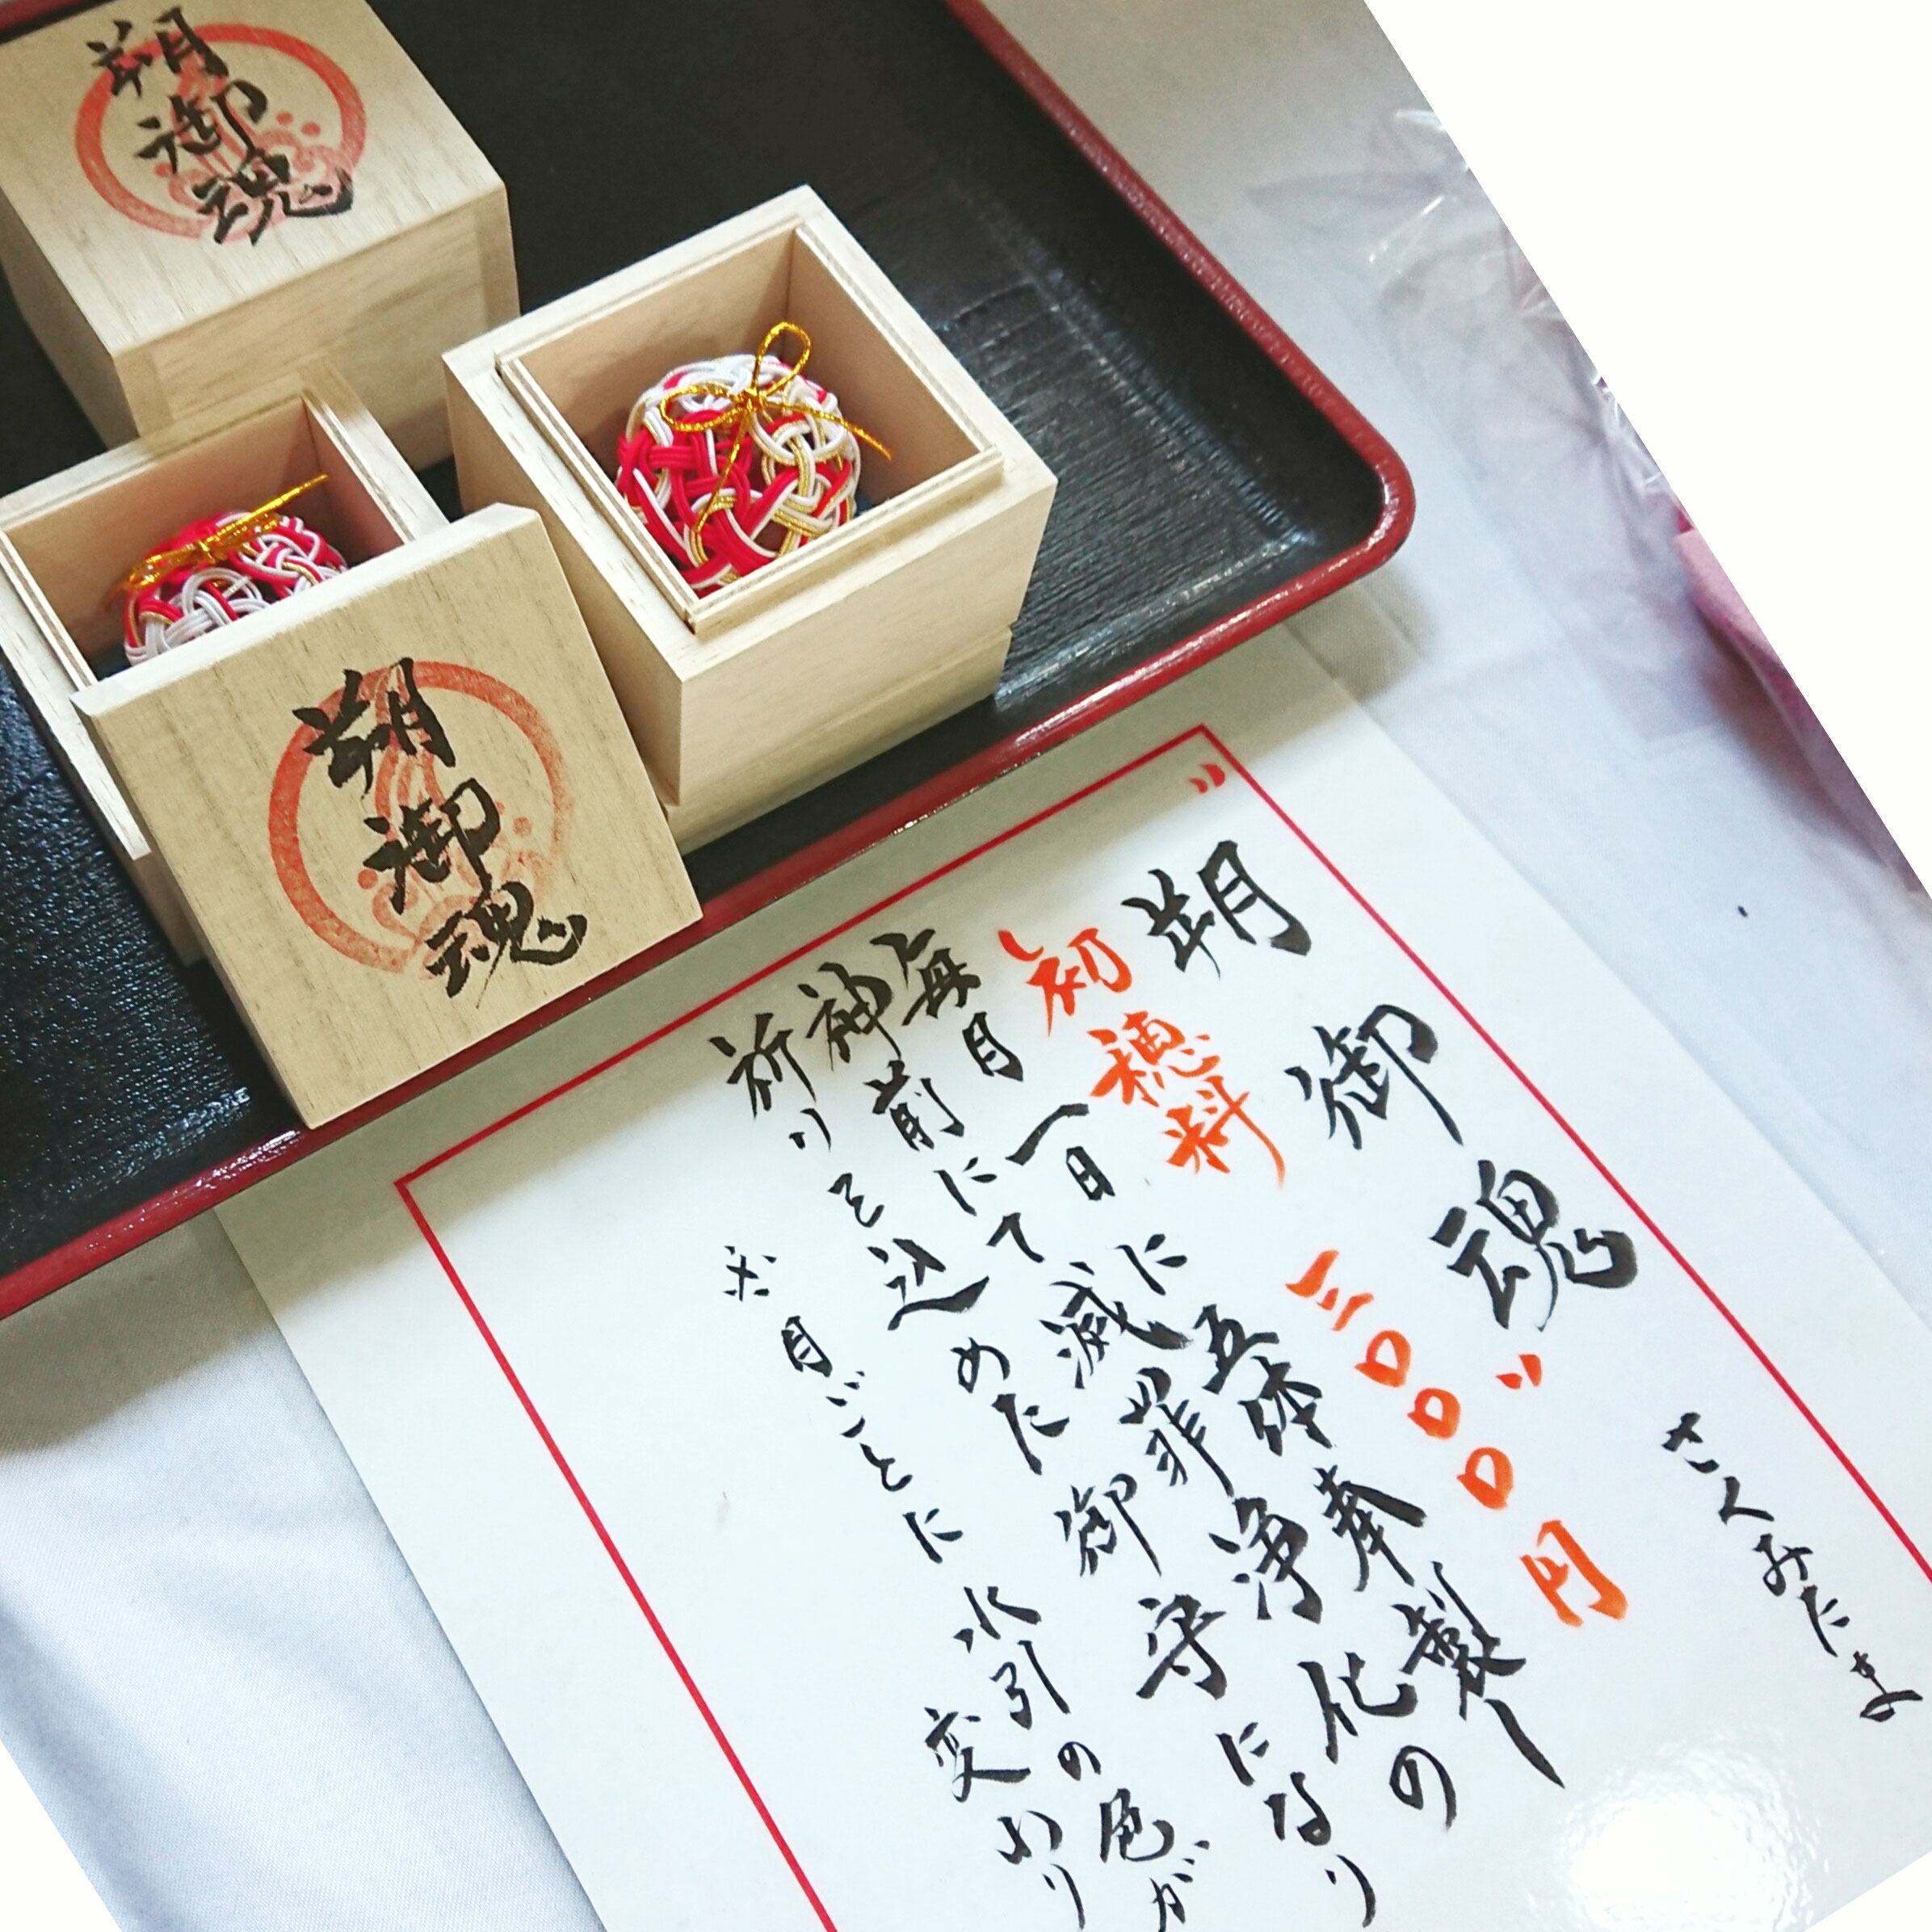 朔御魂
朔御魂
〃朔御魂〃
さくみたま
初穂料 三〇〇〇円
毎月一日に五体奉製し
神前にて滅罪浄化の
祈りを込めた御守になり
※月ごとに水引の色が
変わり